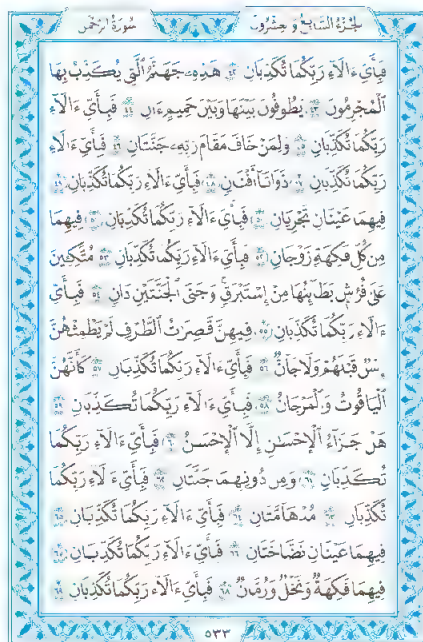 الجزء السابع و عشرون سورة الرحمن
فَبِأَيِّ ءَالَآءِ رَبِّكُمَا تُكَذِّبَانِ ٤٢ هَٰذِهِۦ جَهَنَّمُ الَّتِي يُكَذِّبُ بِهَا
الْمُجْرِمُونَ ٤٣ يَطُوفُونَ بَيْنَهَا وَبَيْنَ حَمِيمٍ ءَانٍ ٤٤ فَبِأَيِّ ءَالَآءِ
رَبِّكُمَا تُكَذِّبَانِ ٤٥ وَلِمَنْ خَافَ مَقَامَ رَبِّهِۦ جَنَّتَانِ ٤٦ فَبِأَيِّ ءَالَآءِ
رَبِّكُمَا تُكَذِّبَانِ ٤٧ ذَوَاتَآ أَفْنَانٍ ٤٨ فَبِأَيِّ ءَالَآءِ رَبِّكُمَا تُكَذِّبَانِ ٤٩
فِيهِمَا عَيْنَانِ تَجْرِيَانِ ٥٠ فَبِأَيِّ ءَالَآءِ رَبِّكُمَا تُكَذِّبَانِ ٥١ فِيهِمَا
مِن كُلِّ فَٰكِهَةٍ زَوْجَانِ ٥٢ فَبِأَيِّ ءَالَآءِ رَبِّكُمَا تُكَذِّبَانِ ٥٣ مُتَّكِـِٔينَ
عَلَىٰ فُرُشٍ بَطَآئِنُهَا مِنْ إِسْتَبْرَقٍ وَجَنَى الْجَنَّتَيْنِ دَانٍ ٥٤ فَبِأَيِّ
ءَالَآءِ رَبِّكُمَا تُكَذِّبَانِ ٥٥ فِيهِنَّ قَٰصِرَٰتُ الطَّرْفِ لَمْ يَطْمِثْهُنَّ
إِنسٌ قَبْلَهُمْ وَلَا جَآنٌّ ٥٦ فَبِأَيِّ ءَالَآءِ رَبِّكُمَا تُكَذِّبَانِ ٥٧ كَأَنَّهُنَّ
الْيَاقُوتُ وَالْمَرْجَانُ ٥٨ فَبِأَيِّ ءَالَآءِ رَبِّكُمَا تُكَذِّبَانِ ٥٩
هَلْ جَزَآءُ الْإِحْسَٰنِ إِلَّا الْإِحْسَٰنُ ٦٠ فَبِأَيِّ ءَالَآءِ رَبِّكُمَا
تُكَذِّبَانِ ٦١ وَمِن دُونِهِمَا جَنَّتَانِ ٦٢ فَبِأَيِّ ءَالَآءِ رَبِّكُمَا
تُكَذِّبَانِ ٦٣ مُدْهَآمَّتَانِ ٦٤ فَبِأَيِّ ءَالَآءِ رَبِّكُمَا تُكَذِّبَانِ ٦٥
فِيهِمَا عَيْنَانِ نَضَّاخَتَانِ ٦٦ فَبِأَيِّ ءَالَآءِ رَبِّكُمَا تُكَذِّبَانِ ٦٧
فِيهِمَا فَٰكِهَةٌ وَنَخْلٌ وَرُمَّانٌ ٦٨ فَبِأَيِّ ءَالَآءِ رَبِّكُمَا تُكَذِّبَانِ ٦٨
٥٣٣